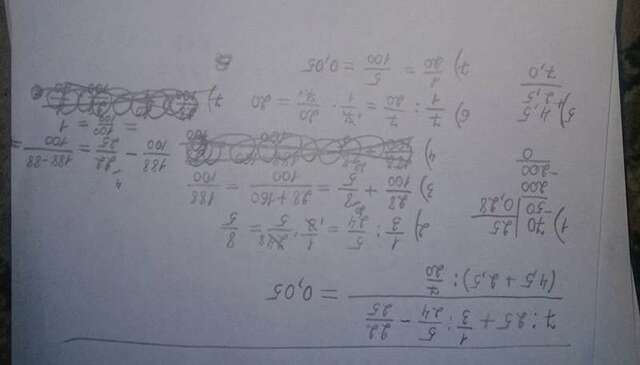 7 : 25 + 1/3 : 5/24 − 22/25
(4,5 + 2,5) : 7/20
= 0,05
1) 70 | 25
50 | 0,28
200
−200
0
2) 1/3 : 5/24 = 1/3 · 24/5 = 8/5
3) 28/100 + 8/5 = 28+160/100 = 188/100
4)
188/100 − 22/25 = 188−88/100 =
= 100/100 = 1
5) 4,5
+ 2,5
7,0
6) 7/1 : 7/20 = 7/1 · 20/7 = 20
7) 1/20 = 5/100 = 0,05